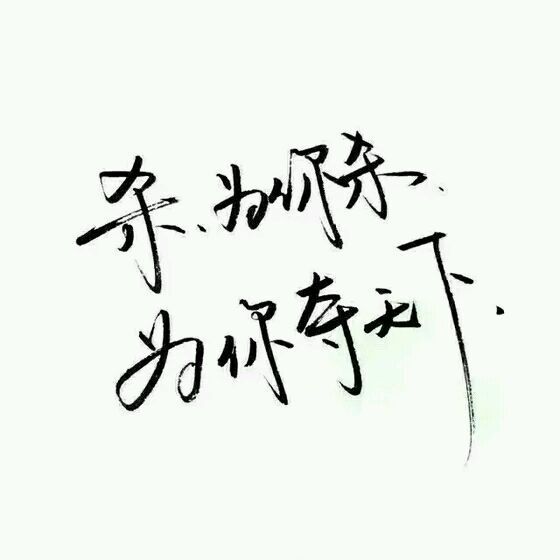 杀、为你杀、
为你夺天下.